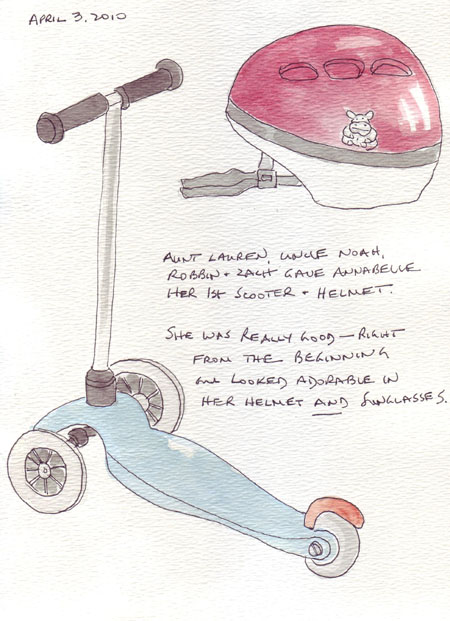 APRIL 3, 2010
AUNT LAUREN, UNCLE NOAH,
ROBBIN + ZACH GAVE ANNABELLE
HER 1ST SCOOTER + HELMET.
SHE WAS REALLY GOOD — RIGHT
FROM THE BEGINNING
LOOKED ADORABLE IN
HER HELMET AND SUNGLASSES.